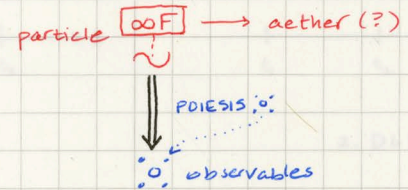 particle ∞F → aether (?)
POIESIS
observables